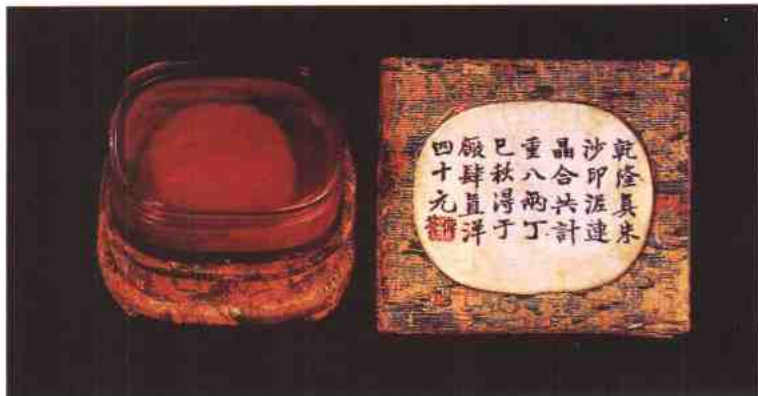 乾隆真朱
沙印泥連
晶合共計
重八兩丁
巳秋得于
廠肆直洋
四十元